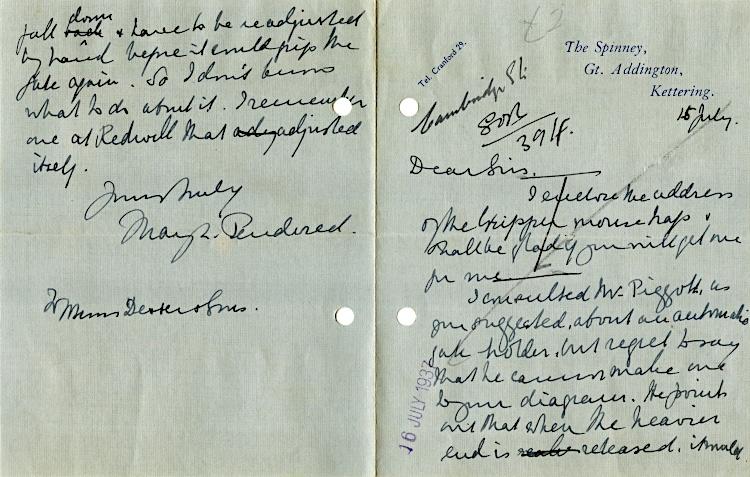 Tel. Cranford 29.
The Spinney,
Gt. Addington,
Kettering.
15 July.
Cambridge St:
80th
394.
Dear Sirs.
I enclose the address
of the Gripper mouse trap &
shall be glad if you will get one
for me
I consulted Mr Piggott, as
you suggested, about an automatic
gate holder, but regret to say
that he cannot make one
by your diagram. He points
out that when the heavier
end is released, it would
16 JULY 1937
fall down & have to be readjusted
by hand before it could grip the
gate again. So I don't know
what to do about it. I remember
one at Redwell that adjusted
itself.
Yours truly
Mary L. Pendered.
To Messrs Dexter & Sons.